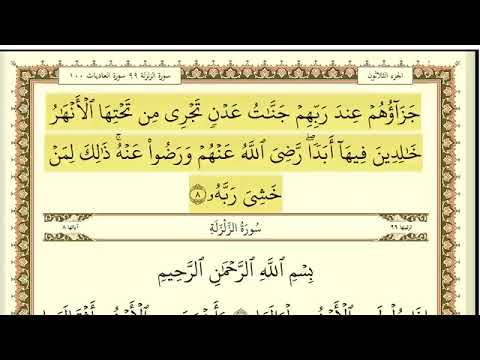 الجزء الثلاثون
سورة الزلزلة ٩٩ سورة العاديات ١٠٠
جَزَآؤُهُمۡ عِندَ رَبِّهِمۡ جَنَّٰتُ عَدۡنٖ تَجۡرِي مِن تَحۡتِهَا ٱلۡأَنۡهَٰرُ
خَٰلِدِينَ فِيهَآ أَبَدٗاۖ رَّضِيَ ٱللَّهُ عَنۡهُمۡ وَرَضُواْ عَنۡهُۚ ذَٰلِكَ لِمَنۡ
خَشِيَ رَبَّهُۥ ٨
ترتيبها ٩٩ سُورَةُ الزَّلْزَلَةِ آياتها ٨
بِسۡمِ ٱللَّهِ ٱلرَّحۡمَٰنِ ٱلرَّحِيمِ